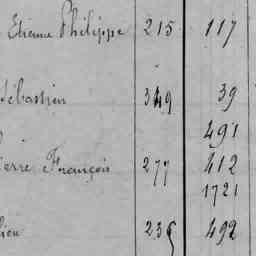 Etienne Philippe 215 117
Sébastien 349 39
491
ierre François 277 412
1721
lien 235 492